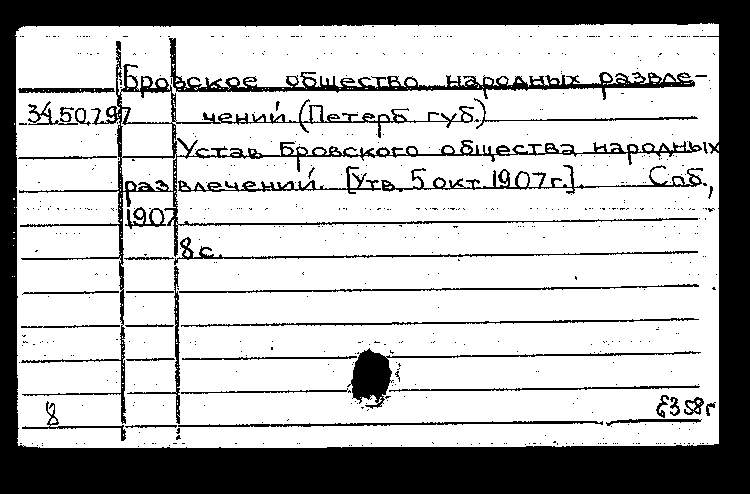 Бровское общество народных развле-
34.50.7.97 чений. (Петерб. губ.)
Устав Бровского общества народных
развлечений. [Утв. 5 окт. 1907 г.]. Спб.,
1907.
8 с.
8